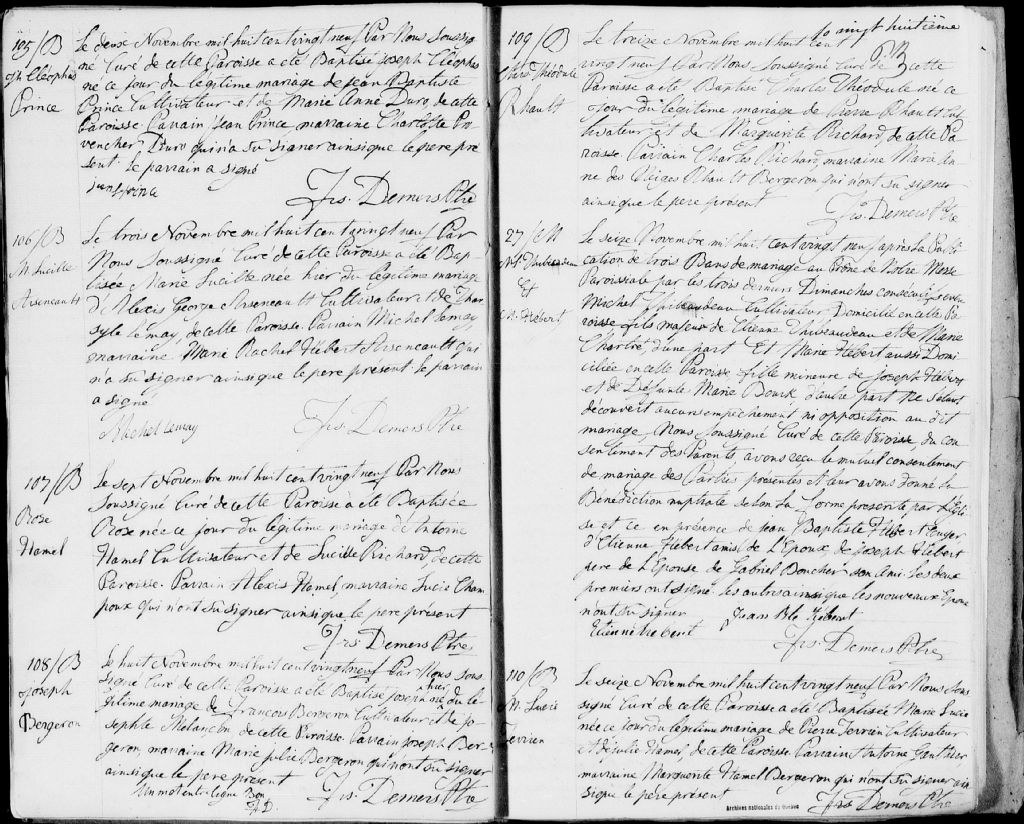 105/B
Jph Cléophas
Prince
Le deuse Novembre mil huit cent vingt neuf Par Nous Soussi
gné, Curé de cette Paroisse a été Baptisé Joseph Cléophas
né ce jour du légitime mariage de Jean Baptiste
Prince Cultivateur et de Marie Anne Duro, de cette
Paroisse. Parrain Jean Prince, marraine Charlotte Pro
vencher Duro qui n'a su signer ainsi que le pere pré
sent le parrain a signé
Jean Prince
Frs. Demers Ptre
106/B
M. Lucille
Arseneault
Le trois Novembre mil huit cent vingt neuf Par
Nous Soussigné Curé de cette Paroisse a été Bap
tisée Marie Lucille née hier du légitime mariage
d'Alexis George Arseneault Cultivateur et de Thar
syle Lemay, de cette Paroisse. Parrain Michel Lemay,
marraine Marie Rachel Hébert Arseneault qui
n'a su signer ainsi que le pere présent le parrain
a signé
Michel Lemay
Frs Demers Ptre
107/B
Rose
Hamel
Le sept Novembre mil huit cent vingt neuf Par Nous
Soussigné Curé de cette Paroisse a été Baptisée
Rose née ce jour du légitime mariage de Antoine
Hamel Cultivateur et de Lucille Richard, de cette
Paroisse. Parrain Alexis Hamel, marraine Lucie Cham
poux qui n'ont su signer ainsi que le pere présent
Frs Demers Ptre
108/B
Joseph
Bergeron
Le huit Novembre mil huit cent vingt neuf Par Nous Sous
signé Curé de cette Paroisse a été Baptisé Joseph né hier du lé
gitime mariage de François Bergeron Cultivateur et de Jo
sephte Melançon, de cette Paroisse. Parrain Joseph Ber
geron, marraine Marie Julie Bergeron qui n'ont su signer
ainsi que le pere présent
Un mot entre ligne Bon
F.D.
Frs. Demers Ptre
fo vingt huitième
109/B
Chars Théodule
Rhault
Le treize Novembre mil huit cent
vingt neuf Par Nous Soussigné Curé de cette
Paroisse a été Baptisé Charles Théodule né ce
jour du légitime mariage de Pierre Rhault Cul
tivateur et de Marguerite Richard, de cette Pa
roisse. Parrain Charles Richard, marraine Marie An
ne des Neiges Rhault Bergeron qui n'ont su signer
ainsi que le pere présent
Frs. Demers Ptre
27/M
Thibaudeau
Et
M. Hébert
Le seize Novembre mil huit cent vingt neuf, après la Publi
cation de trois Bans de mariage au Prône de Notre Messe
Paroissiale par les trois derniers Dimanches consécutifs entre
Michel Thibeaudeau Cultivateur Domicilié en cette Pa
roisse fils majeur de Etienne Thibeaudeau et de Marie
Chartré, d'une part Et Marie Hébert aussi Domi
ciliée en cette Paroisse fille mineure de Joseph Hébert
et de Défunte Marie Bourk d'autre part Ne s'étant
découvert aucun empêchement ni opposition au dit
mariage, Nous Soussigné Curé de cette Paroisse, du con
sentement des Parents avons reçu le mutuel consentement
de mariage des Parties présentes et leur avons donné la
Bénédiction nuptiale selon la forme prescrite par l'Egli
se et ce en présence de Jean Baptiste Hébert Ecuyer
d'Etienne Hébert amis de l'Epoux, de Joseph Hébert
pere de l'Epouse de Gabriel Boucher son Ami. Les deux
premiers ont signé les autres ainsi que les nouveaux Epoux
n'ont su signer
Jean Bte Hébert
Etienne hebert
Frs. Demers Ptre
110/B
M. Lucie
Terrien
Le seize Novembre mil huit cent vingt neuf Par Nous Sous
signé Curé de cette Paroisse a été Baptisée Marie Lucie
née ce jour du légitime mariage de Pierre Terrien Cultivateur
et de Julie Hamel, de cette Paroisse. Parrain Antoine Gauthier
marraine Marguerite Hamel Bergeron qui n'ont su signer ain
si que le pere présent
Frs Demers Ptre
Archives nationales du Québec